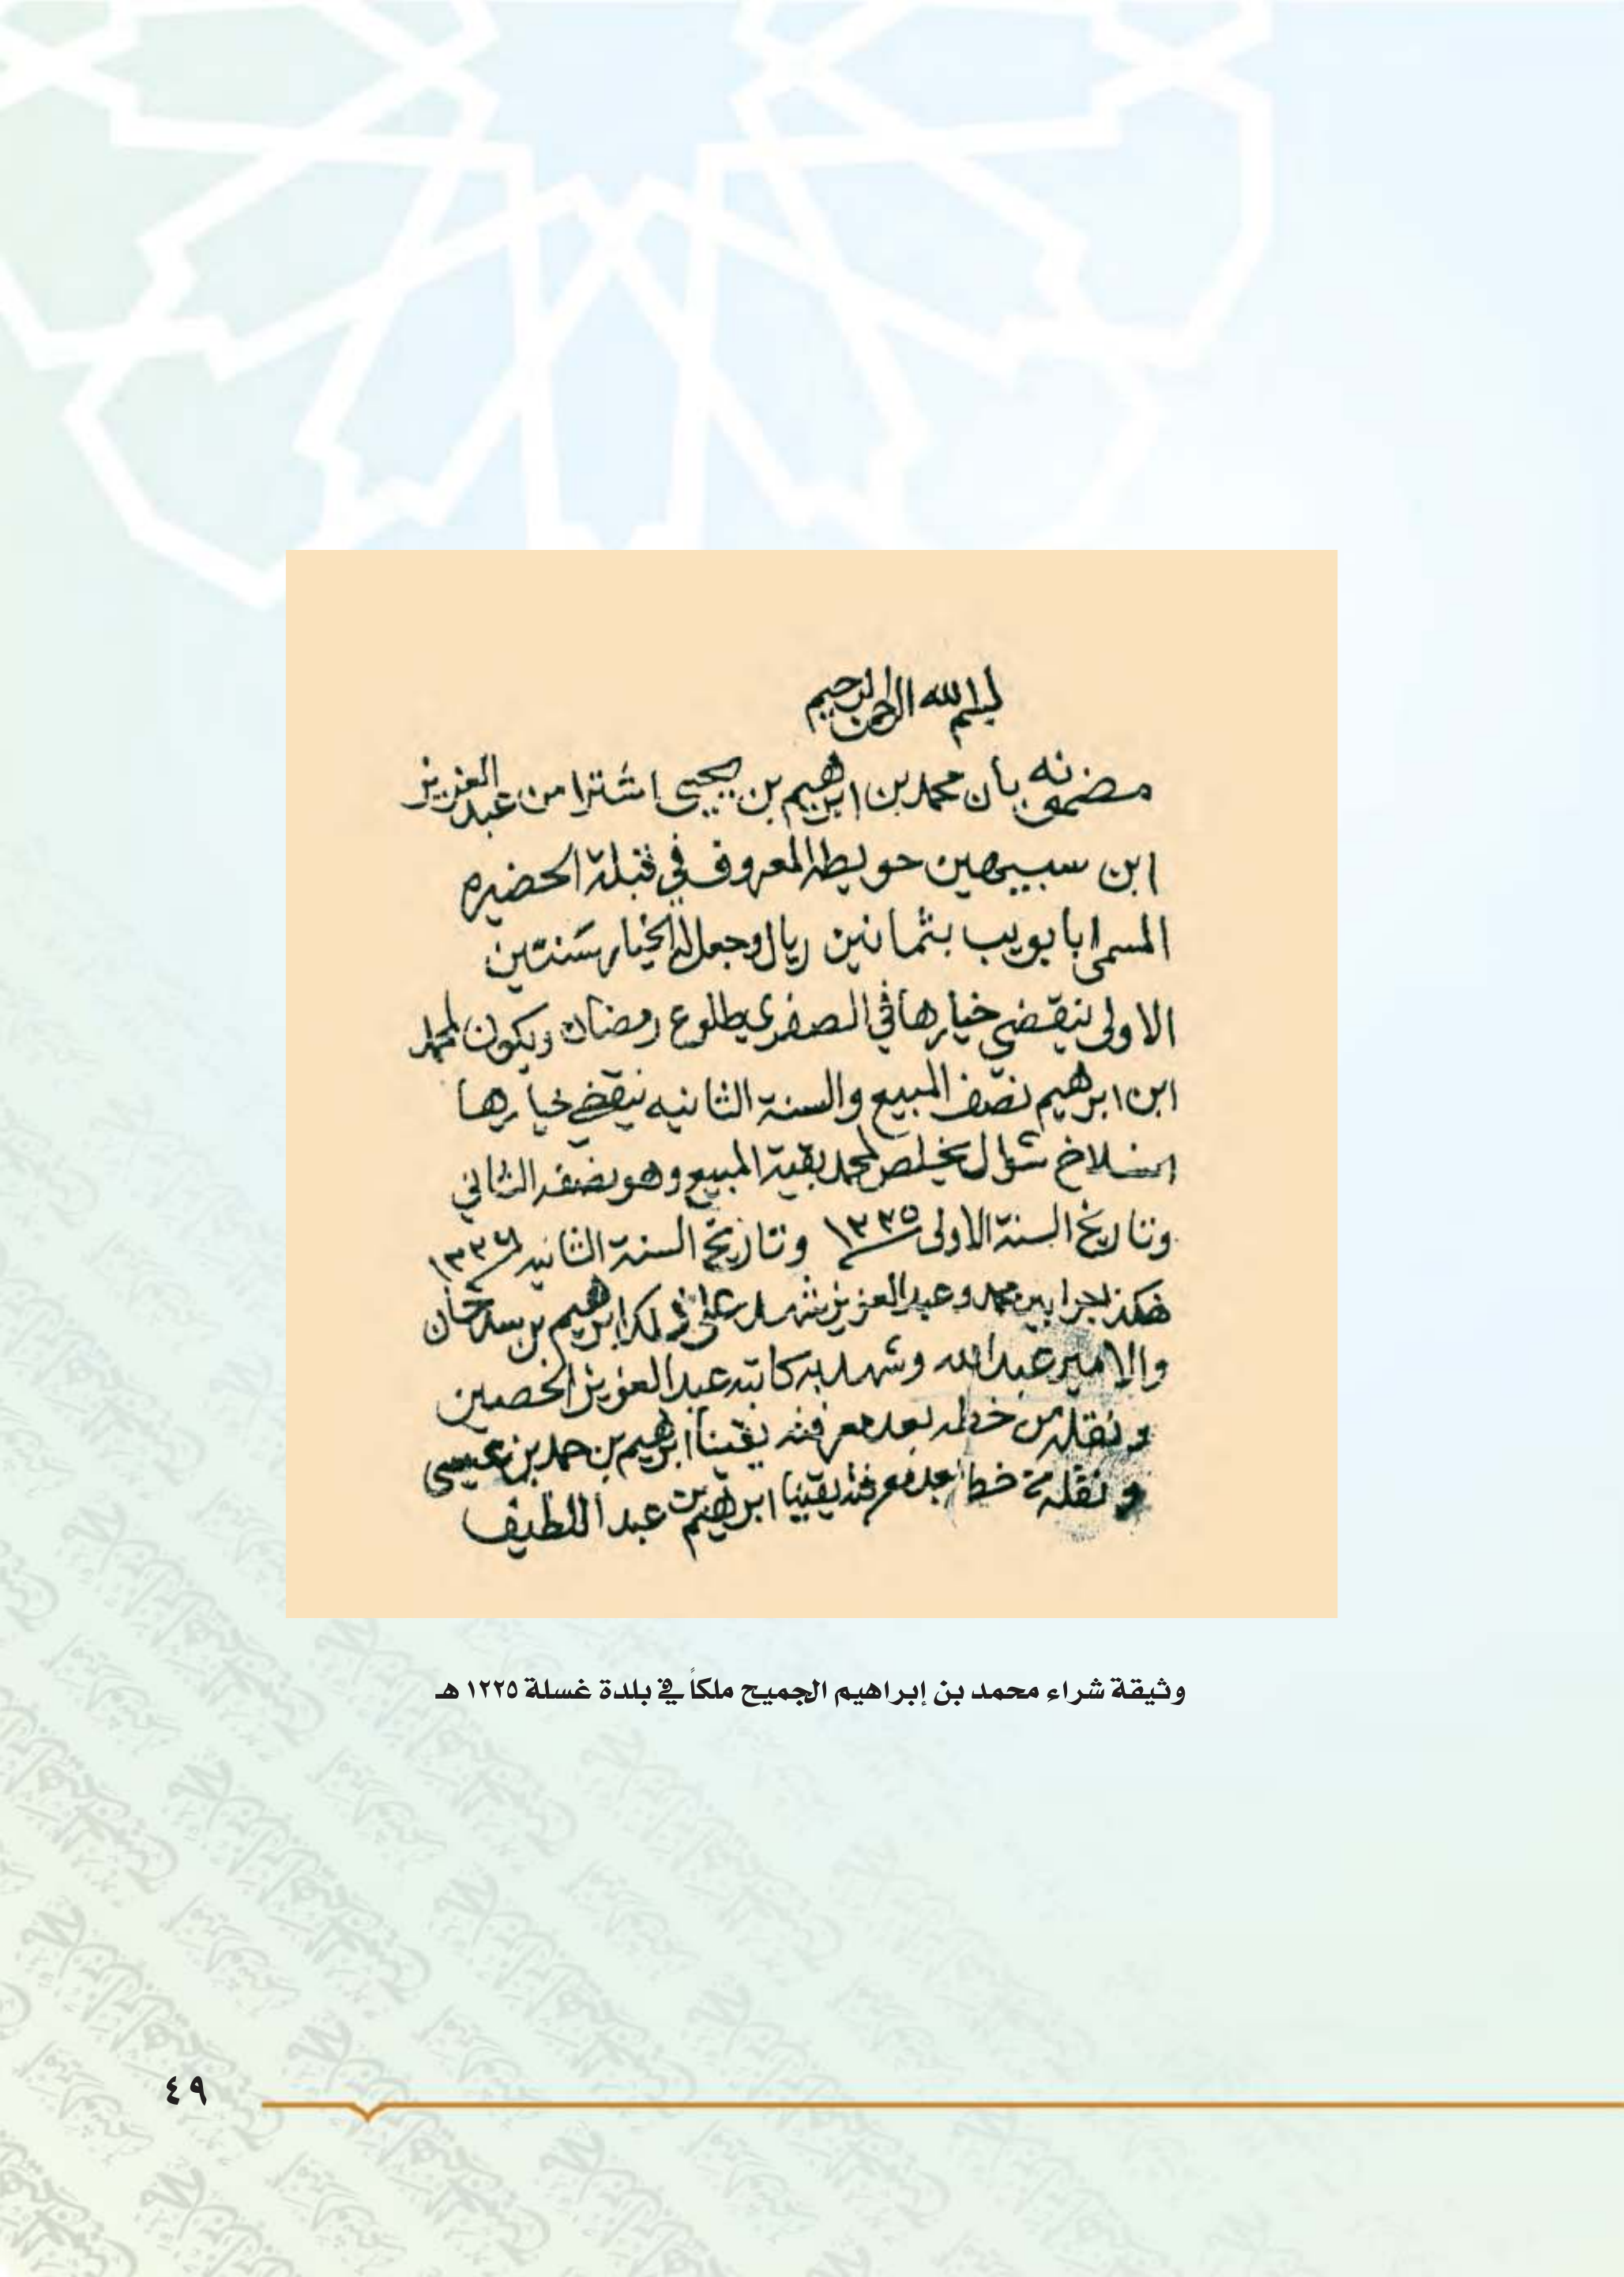 بسم الله الرحمن الرحيم
مضمونه بان محمد بن ابرهيم بن يحيى اشترا من عبد العزيز
ابن سبيهين حويطه المعروف في قبلة الحضيره
المسمى ابا بويب بثمانين ريال وجعل له الخيار سنتين
الاولى ينقضي خيارها في الصفري بطلوع رمضان ويكون لمحمد
ابن ابرهيم نصف المبيع والسنة الثانيه ينقضي خيارها
انسلاخ شوال يخلص لمحمد بقية المبيع وهو نصفه الثاني
وتاريخ السنة الاولى ١٢٢٥ وتاريخ السنة الثانيه ١٢٢٦
هكذا جرا بين محمد وعبد العزيز شهد على ذلك ابرهيم بن سدحان
والامير عبد الله وشهد به كاتبه عبد العزيز الحصين
ونقله من خطه بعد معرفته يقينا ابرهيم بن حمد بن عيسى
ونقله من خط بعد معرفته يقينا ابرهيم بن عبد اللطيف
وثيقة شراء محمد بن إبراهيم الجميح ملكاً في بلدة غسلة ١٢٢٥ هـ
٤٩